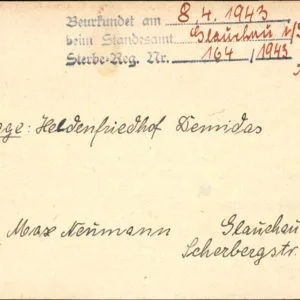 Beurkundet am 8.4.1943
beim Standesamt Glauchau
Sterbe-Reg. Nr. 164/1943
age: Heldenfriedhof Demidas
Max Neumann Glauchau
Scherbergstr.